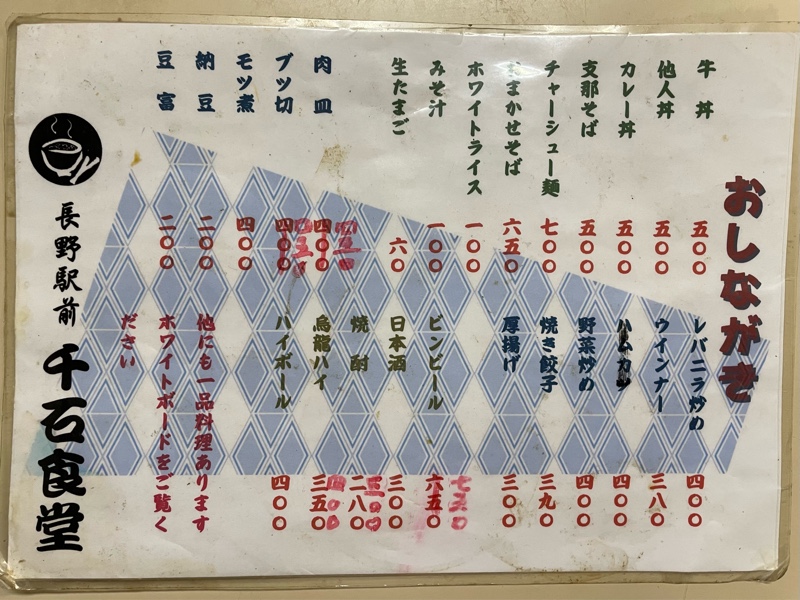 おしながき
牛丼 五〇〇
他人丼 五〇〇
カレー丼 五〇〇
支那そば 五〇〇
チャーシュー麺 七〇〇
おまかせそば 六五〇
ホワイトライス 一〇〇
みそ汁 一〇〇
生たまご 六〇
肉皿 四〇〇 四五〇
ブツ切 四〇〇 四五〇
モツ煮 四〇〇
納豆 二〇〇
豆富 二〇〇
レバニラ炒め 四〇〇
ウインナー 三八〇
ハムカツ 四〇〇
野菜炒め 四〇〇
焼き餃子 三九〇
厚揚げ 三〇〇
ビンビール 六五〇
日本酒 三〇〇
焼酎 二八〇 三〇〇
烏龍ハイ 三五〇 四〇〇
ハイボール 四〇〇
他にも一品料理あります
ホワイトボードをご覧く
ださい
長野駅前 千石食堂